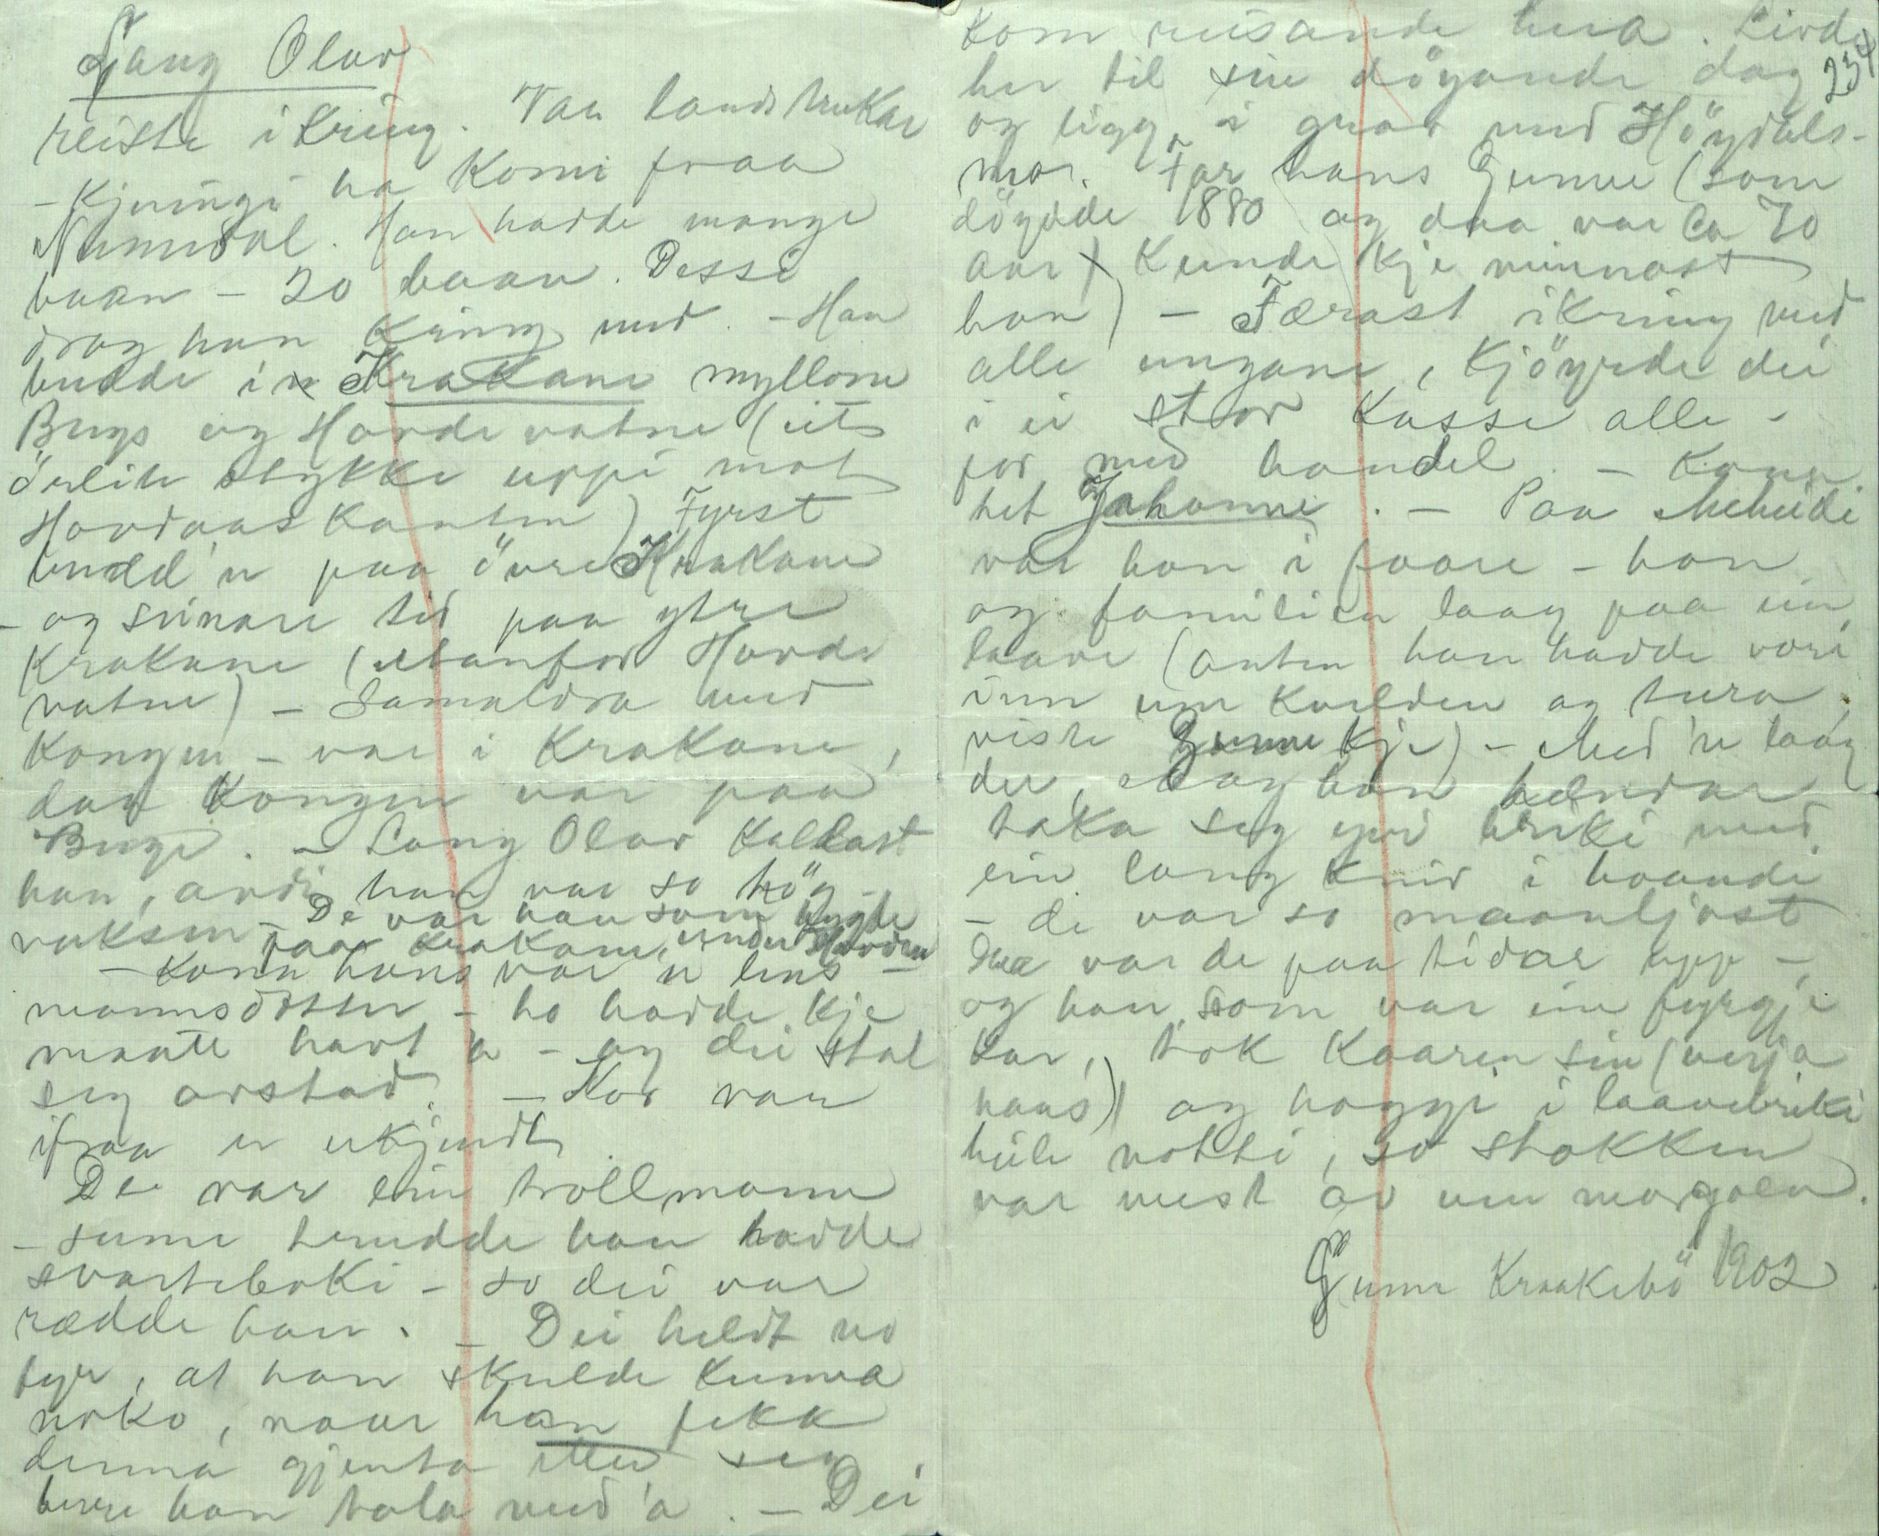 Lang Olav
reiste ikring. Van landstrukar
- Kjeringi ha komi fraa
Numedal. Han hadde mange
baan - 20 baan. Desse
drog han kring med. - Han
budde i Krakane myllom
Bugs og Hovdevatne (eit
örlite stykke uppi mot
Hovdaaskanten) Fyrst
budd'n paa övre Krakane
- og seinare tid paa ytre
Krakane (utanfor Hovde
vatne) - Samaldra med
Kongen - var i Krakane,
daa Kongen var paa
Bugi. - Lang Olav kallast
han, avdi han var so hög-
vaksen - De var han som bygde
paa Krakane, under Hovden
- Kona hans var 'n lens-
mannsdotter - ho hadde kje
maatt havt 'n - og dei stal
seg avstad. - Kor van
ifraa er ukjendt.
De var ein trollmann
- sume trudde han hadde
svarteboki - so dei var
rædde han. - Dei heldt no
fyr, at han skulde kunna
noko, naar han fekk
denna gjenta etter seg
berre han tala med 'a. - Dei
kom reisande hera. Livde
her til sin döyande dag
234
og ligg i grav ved Höydals-
mo. Far hans Gunne (som
döydde 1880 og daa var ca 70
aar) kunde kje minnast
han) - Færast ikring med
alle ungane, kjöyrde dei
i ei stor kasse alle -
for med handel. - Kona
het Johanne. - Paa Meheidi
var han i faare - han
og familien laag paa ein
laave (anten han hadde vori
inn um kvelden og tura,
viste Gunne kje) - Med 'n laag
der, saag han hendar
taka seg yvi briki med
ein lang kniv i haandi
- de var so maanljost
Daa var de paa tidar upp -
og han som var ein fyrgje
kar, tok kaaren sin (verja
hans) og hoggji i laavebriki
heile notti, so stokken
var mest av um morgoen.
Gunne Kraakebö 1902